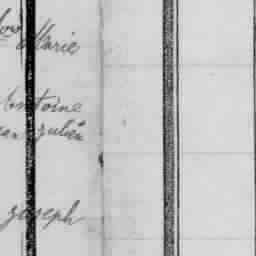 Marie
Antoine
Julien
Joseph